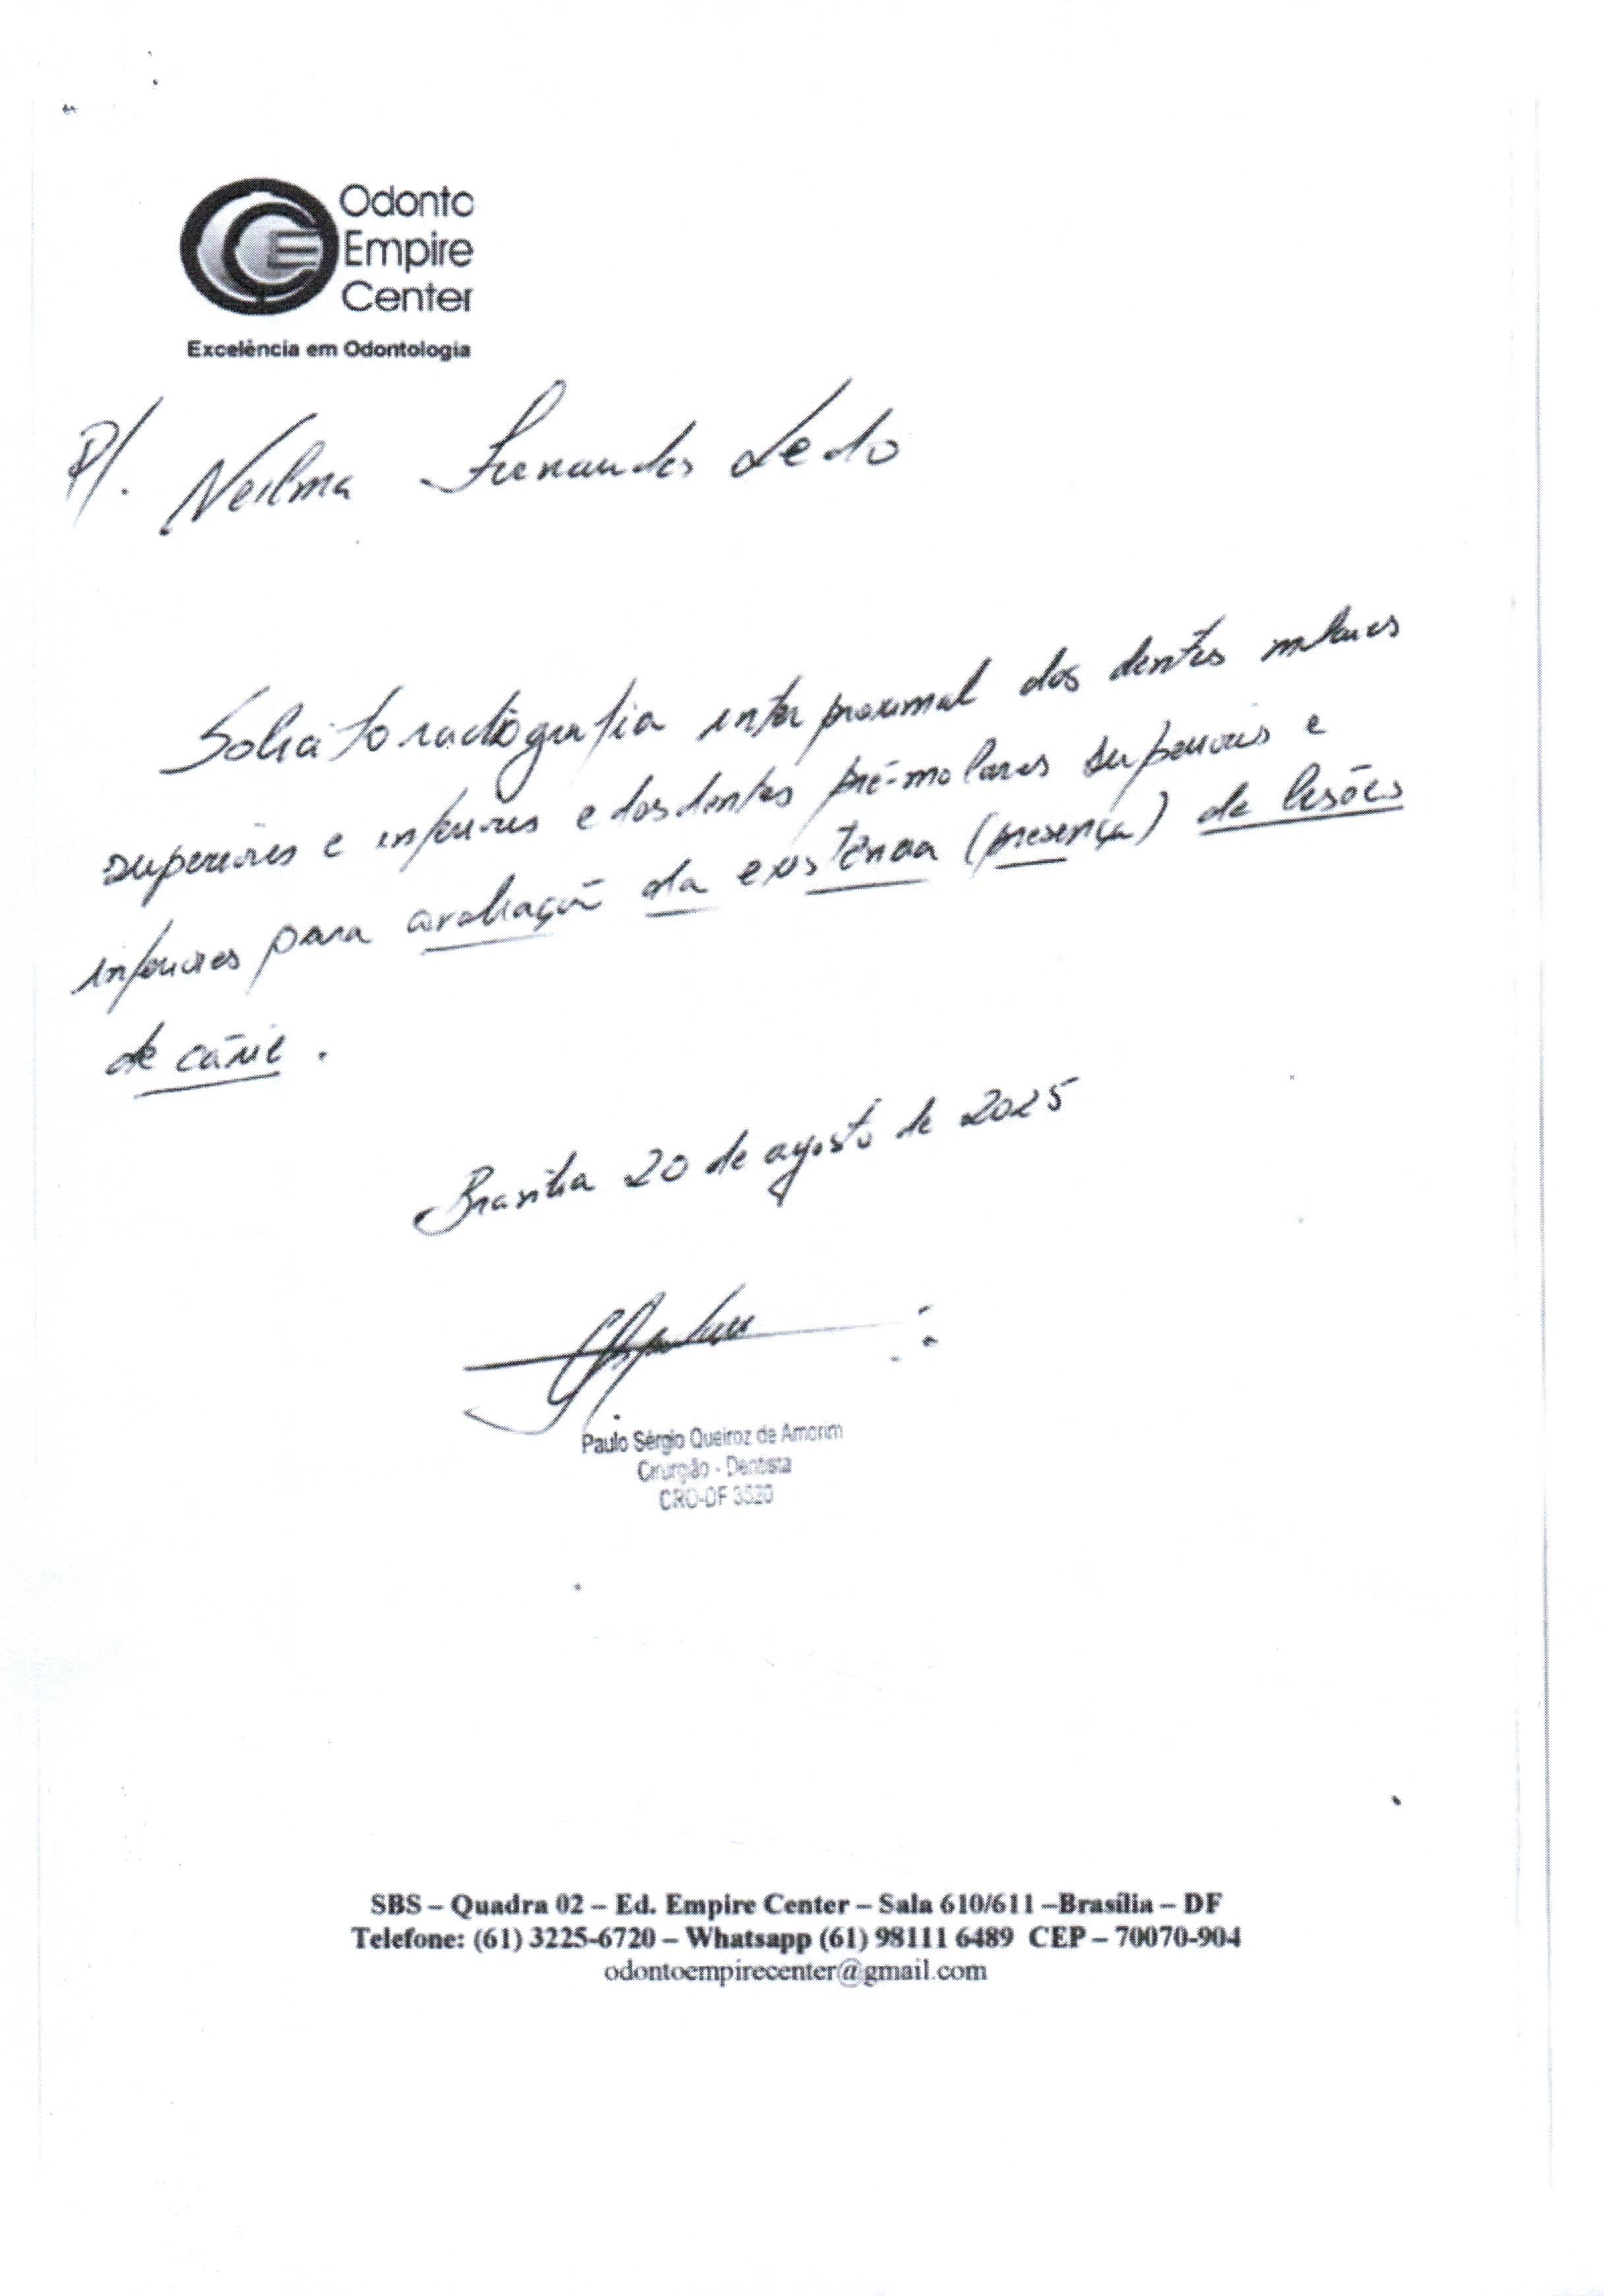 Odonto
Empire
Center
Excelência em Odontologia
P/. Neilma Fernandes Ledo
Solicito radiografia interproximal dos dentes molares
superiores e inferiores e dos dentes pré-molares superiores e
inferiores para avaliação da existência (presença) de lesões
de cárie.
Brasília 20 de agosto de 2025
Paulo Sérgio Queiroz de Amorim
Cirurgião - Dentista
CRO-DF
SBS – Quadra 02 – Ed. Empire Center – Sala 610/611 –Brasília – DF
Telefone: (61) 3225-6720 – Whatsapp (61) 98111 6489 CEP – 70070-904
odontoempirecenter@gmail.com